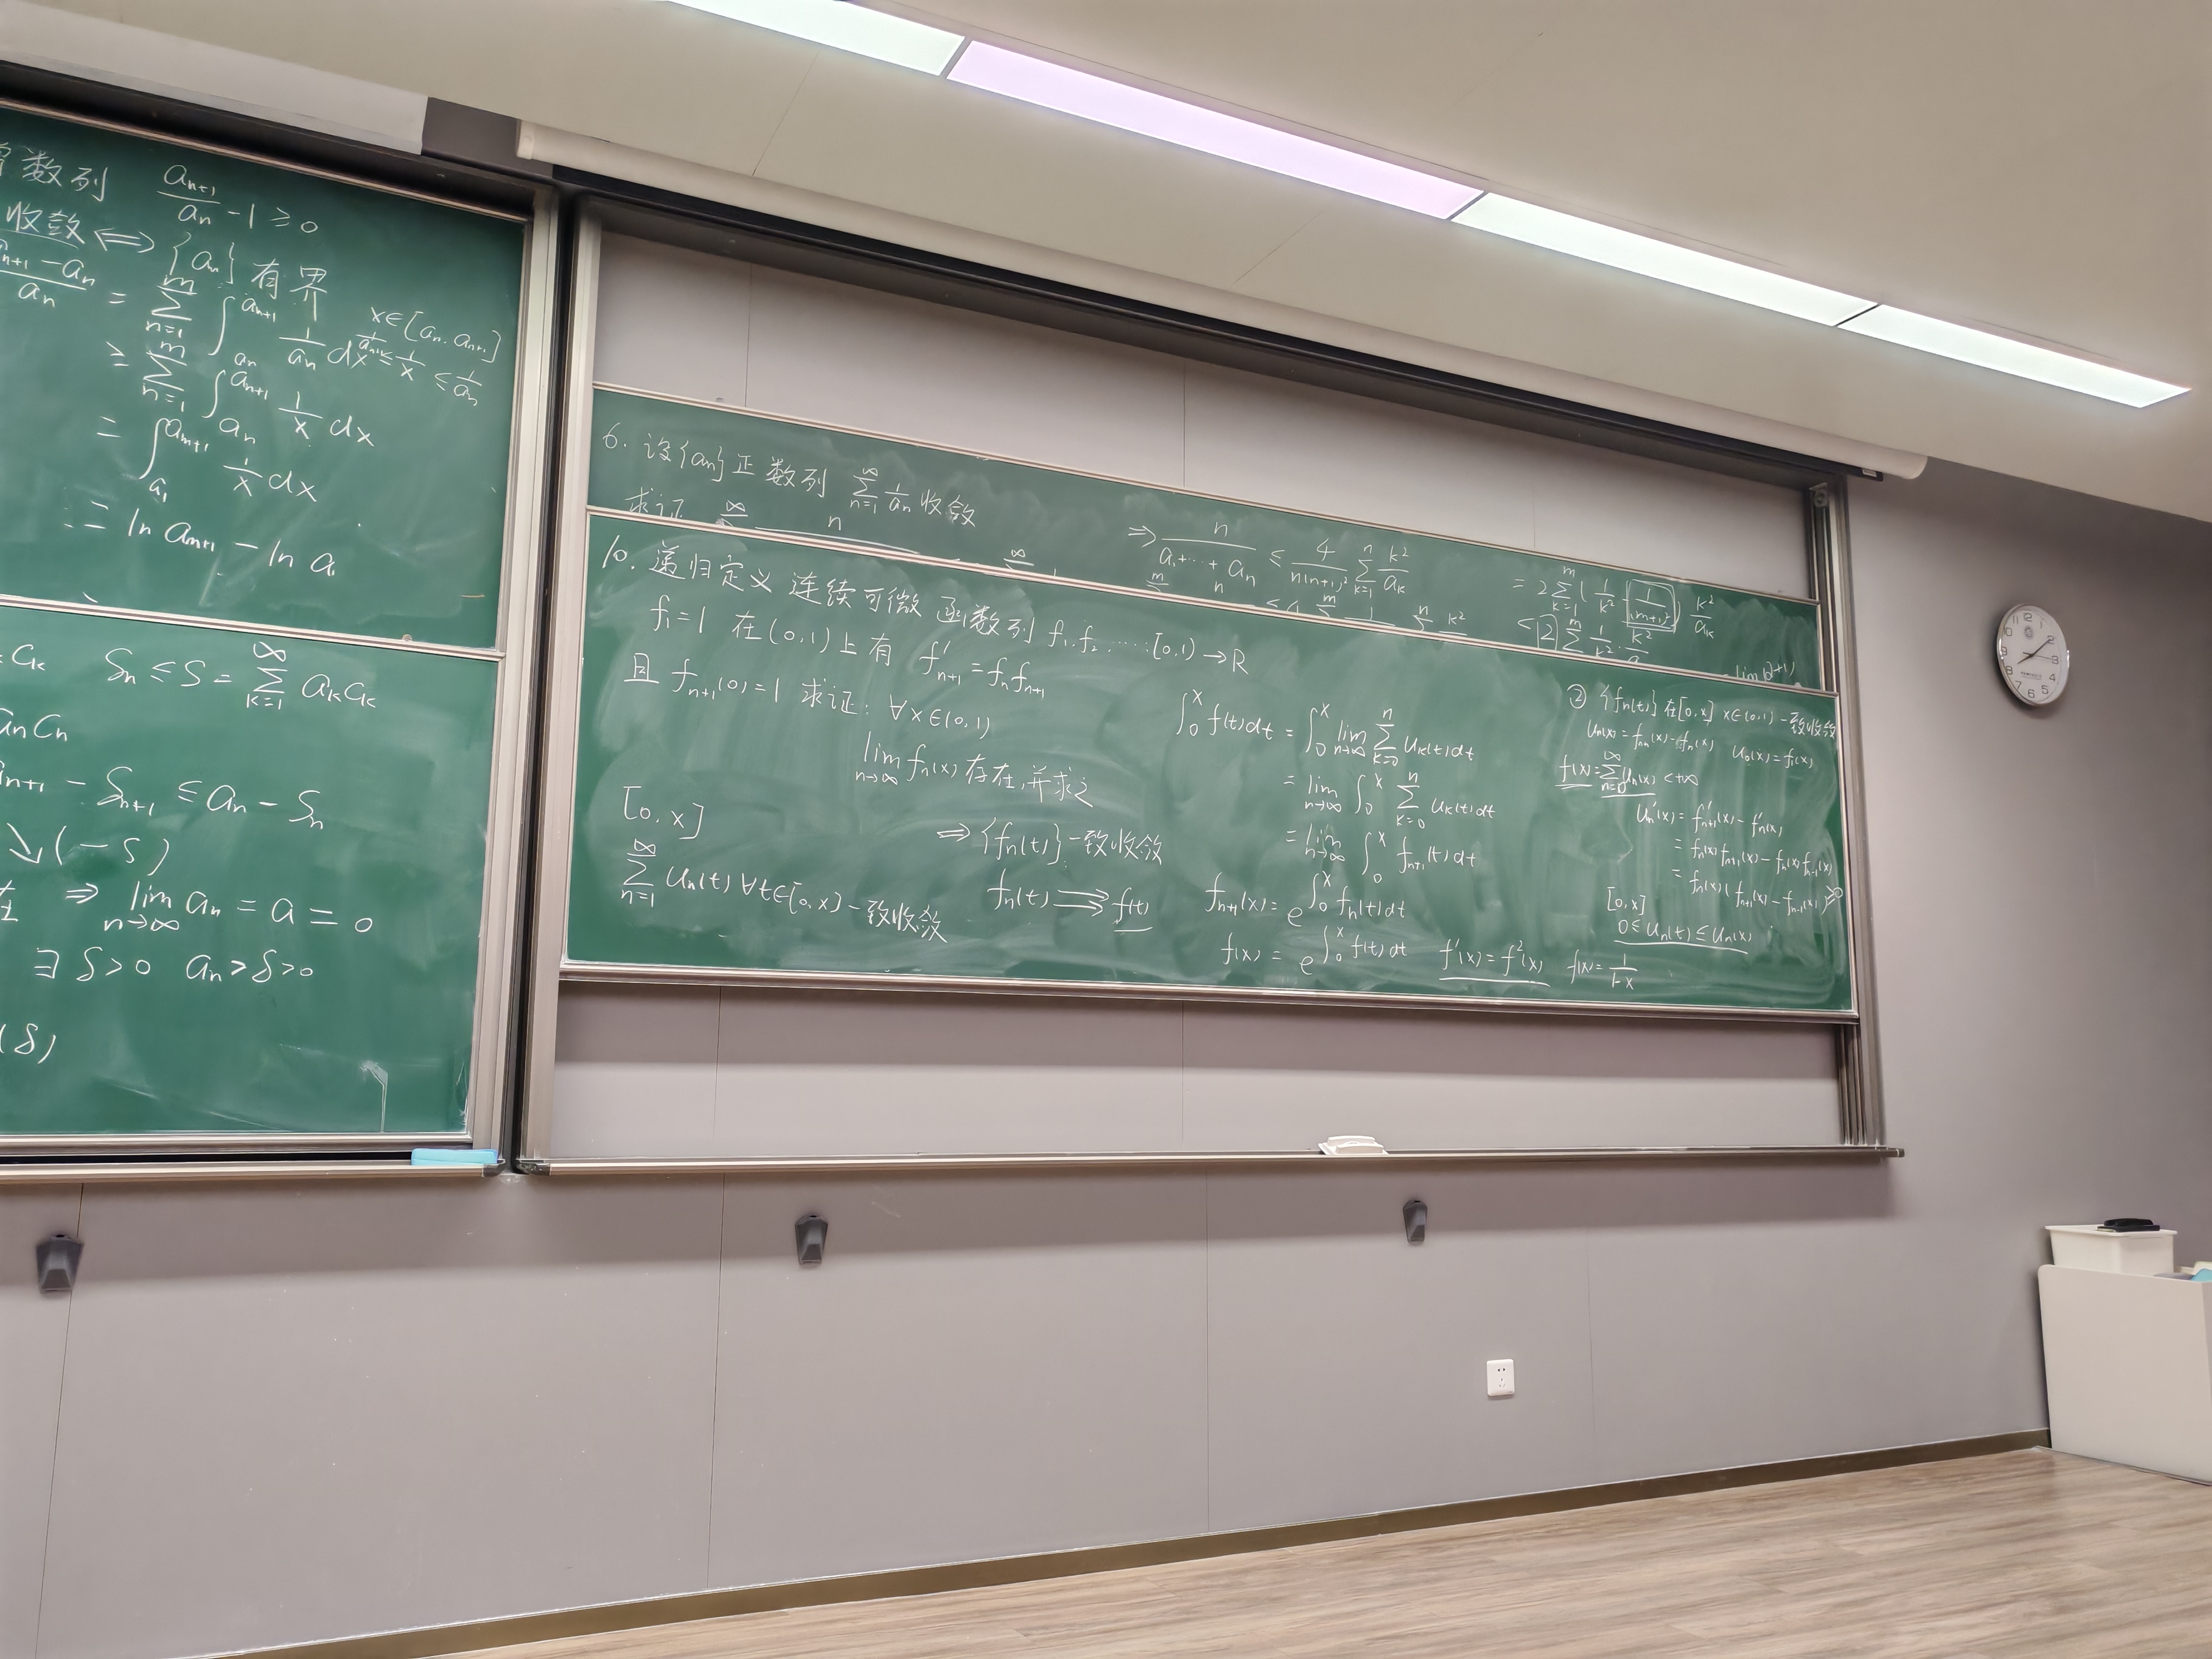 数列 \frac{a_{n+1}}{a_n} - 1 ≥ 0
收敛 ⟺ {a_n} 有界
\frac{a_{n+1} - a_n}{a_n} = \sum_{n=1}^{m} \int_{a_n}^{a_{n+1}} \frac{1}{a_n} dx x∈[a_n, a_{n+1}]
\frac{1}{a_{n+1}} ≤ \frac{1}{x} ≤ \frac{1}{a_n}
≥ \sum_{n=1}^{m} \int_{a_n}^{a_{n+1}} \frac{1}{x} dx
= \int_{a_1}^{a_{m+1}} \frac{1}{x} dx
= ln a_{m+1} - ln a_1
C_k S_n ≤ S = \sum_{k=1}^{∞} a_k C_k
a_n C_n
a_{n+1} - S_{n+1} ≤ a_n - S_n
↘ (-S)
⇒ \lim_{n→∞} a_n = a = 0
∃ δ > 0 a_n > δ > 0
(δ)
6. 设{a_n}正数列 \sum_{n=1}^{∞} \frac{1}{a_n} 收敛
求证 ∞ n
⇒ \frac{n}{a_1 + ⋯ + a_n} ≤ \frac{4}{n(n+1)^2} \sum_{k=1}^{n} \frac{k^2}{a_k}
= 2 \sum_{k=1}^{m} ( \frac{1}{k^2} - \frac{1}{(m+1)^2} ) \frac{k^2}{a_k}
≤ 2 \sum \frac{1}{k^2} · \frac{k^2}{a
10. 递归定义 连续可微 函数列 f_1, f_2, ⋯⋯: [0,1) → R
f_1 = 1 在 (0,1) 上有 f'_{n+1} = f_n f_{n+1}
且 f_{n+1}(0) = 1 求证: ∀x∈(0,1)
\lim_{n→∞} f_n(x) 存在, 并求之
[0, x]
\sum_{n=1}^{∞} u_n(t) ∀t∈[0, x] 一致收敛
⇒ {f_n(t)} 一致收敛
f_n(t) ⇉ f(t)
\int_0^x f(t) dt = \int_0^x \lim_{n→∞} \sum_{k=0}^{n} u_k(t) dt
= \lim_{n→∞} \int_0^x \sum_{k=0}^{n} u_k(t) dt
= \lim_{n→∞} \int_0^x f_{n+1}(t) dt
f_{n+1}(x) = e^{\int_0^x f_n(t) dt}
f(x) = e^{\int_0^x f(t) dt} f'(x) = f^2(x) f(x) = \frac{1}{1-x}
② {f_n(t)} 在 [0, x] x∈(0,1) 一致收敛
u_n(x) = f_{n+1}(x) - f_n(x) u_0(x) = f_1(x)
f(x) = \sum_{n=0}^{∞} u_n(x) < +∞
u'_n(x) = f'_{n+1}(x) - f'_n(x)
= f_n(x) f_{n+1}(x) - f_n(x) f_{n-1}(x)
= f_n(x) ( f_{n+1}(x) - f_{n-1}(x) ) ≥ 0
[0, x]
0 ≤ u_n(t) ≤ u_n(x)